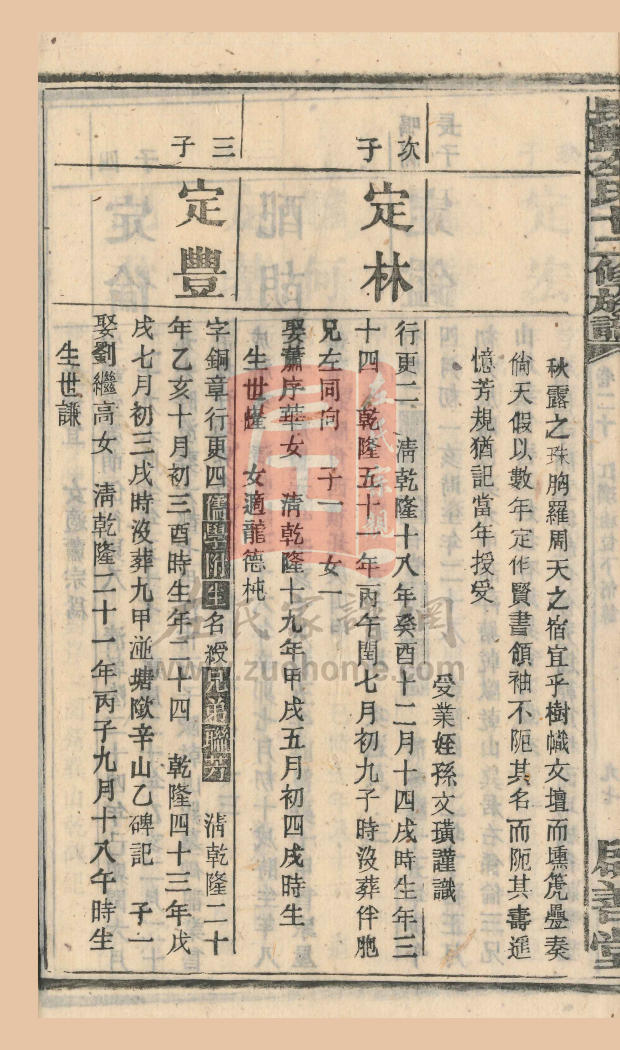 長豐左氏十二修族譜
秋露之珠胸羅周天之宿宜乎樹幟文壇而壎箎疊奏
倘天假以數年定作賢書領袖不阨其名而阨其壽遥
憶芳規猶記當年授受
受業姪孫文璜謹識
次子
定林
行更二 清乾隆十八年癸酉十二月十四戌時生年三
十四 乾隆五十一年丙午閏七月初九子時沒葬伴胞
兄左同向 子一 女一
娶蕭序華女 清乾隆十九年甲戌五月初四戌時生
生世 女適龍德
三子
定豐
字銅章行更四儒學附生名綬兄弟聯芳 清乾隆二十
年乙亥十月初三酉時生年二十四 乾隆四十三年戊
戌七月初三戌時沒葬九甲塘歐辛山乙碑記 子一
娶劉繼高女 清乾隆二十一年丙子九月十八午時生
生世謙
左氏家譜網
www.zuohome.com